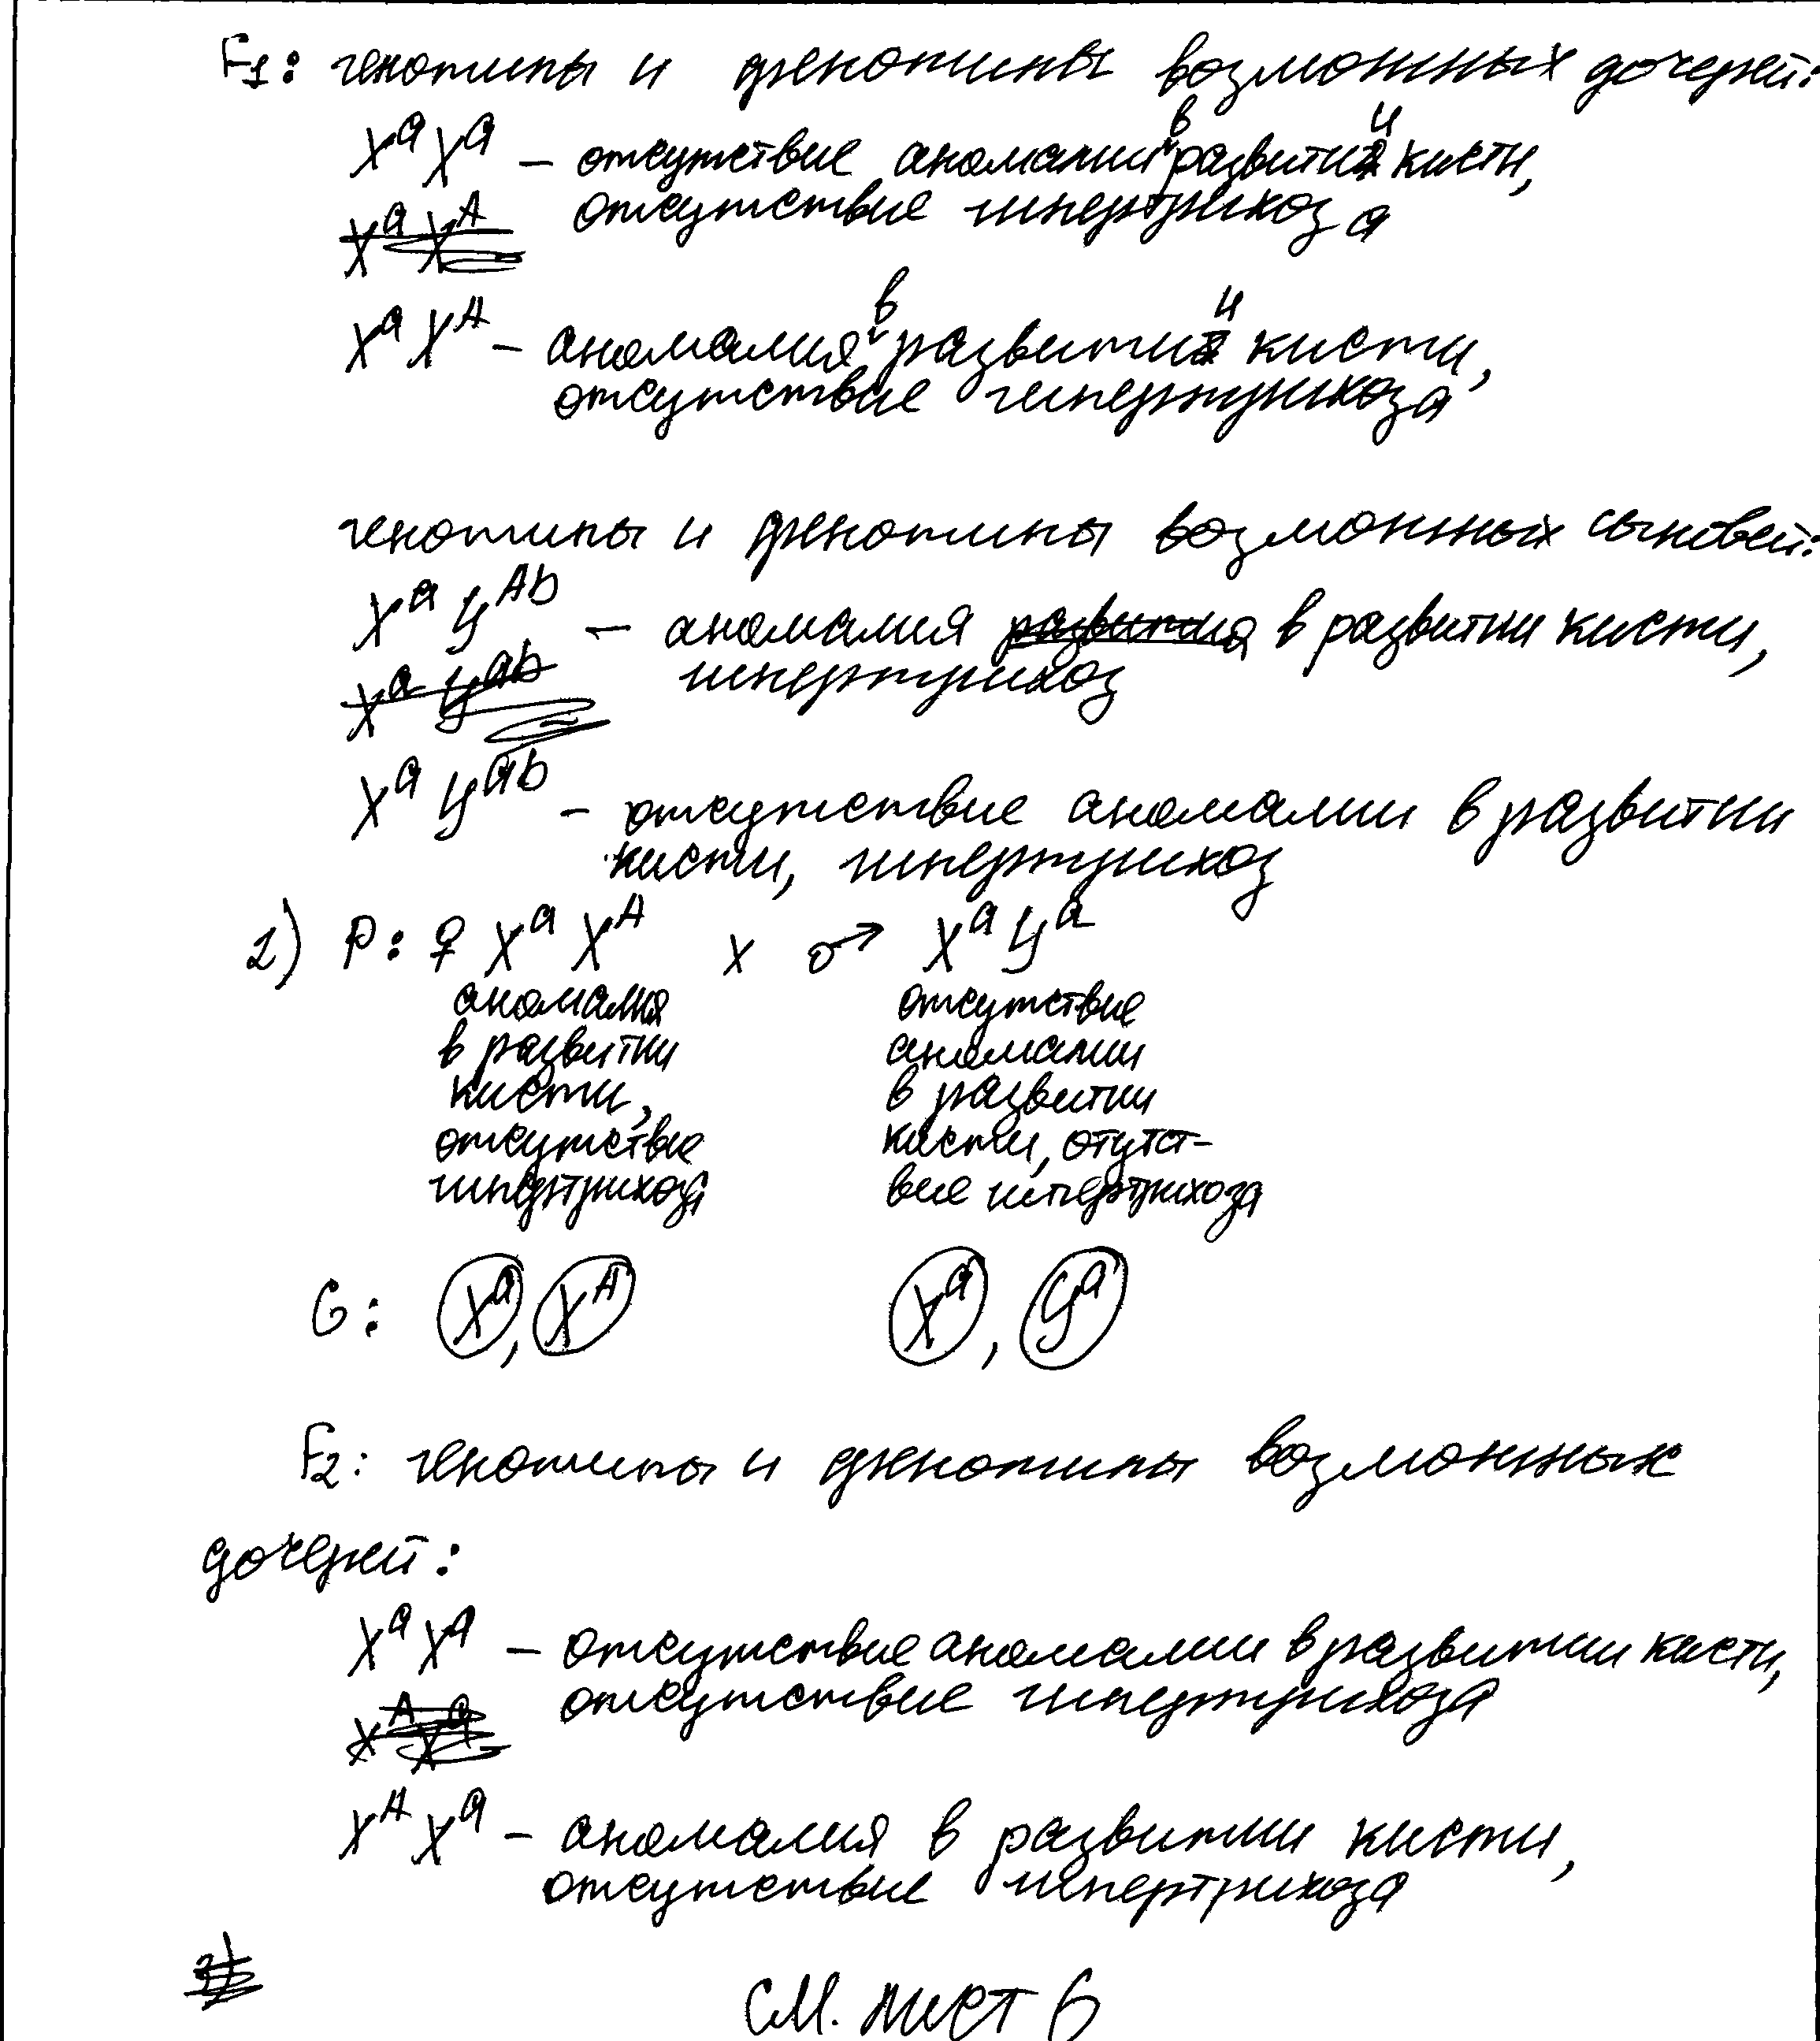 F1: генотипы и фенотипы возможных дочерей:
XᵃXᵃ – отсутствие аномалии в развитии кисти,
отсутствие гипертрихоза
XᵃXᴬ
XᵃXᴬ – аномалия в развитии кисти,
отсутствие гипертрихоза
генотипы и фенотипы возможных сыновей:
XᵃYᴬᵇ – аномалия развития в развитии кисти,
гипертрихоз
XᵃYᵃᵇ
XᵃYᵃᵇ – отсутствие аномалии в развитии
кисти, гипертрихоз
2) P: ♀ XᵃXᴬ x ♂ XᵃYᵃ
аномалия отсутствие
в развитии аномалии
кисти, в развитии
отсутствие кисти, отутст-
гипертрихоза вие гипертрихоза
G: Xᵃ, Xᴬ Xᵃ, Yᵃ
F2: генотипы и фенотипы возможных
дочерей:
XᵃXᵃ – отсутствие аномалии в развитии кисти,
отсутствие гипертрихоза
XᴬXᵃ
XᴬXᵃ – аномалия в развитии кисти,
отсутствие гипертрихоза
см. лист 6